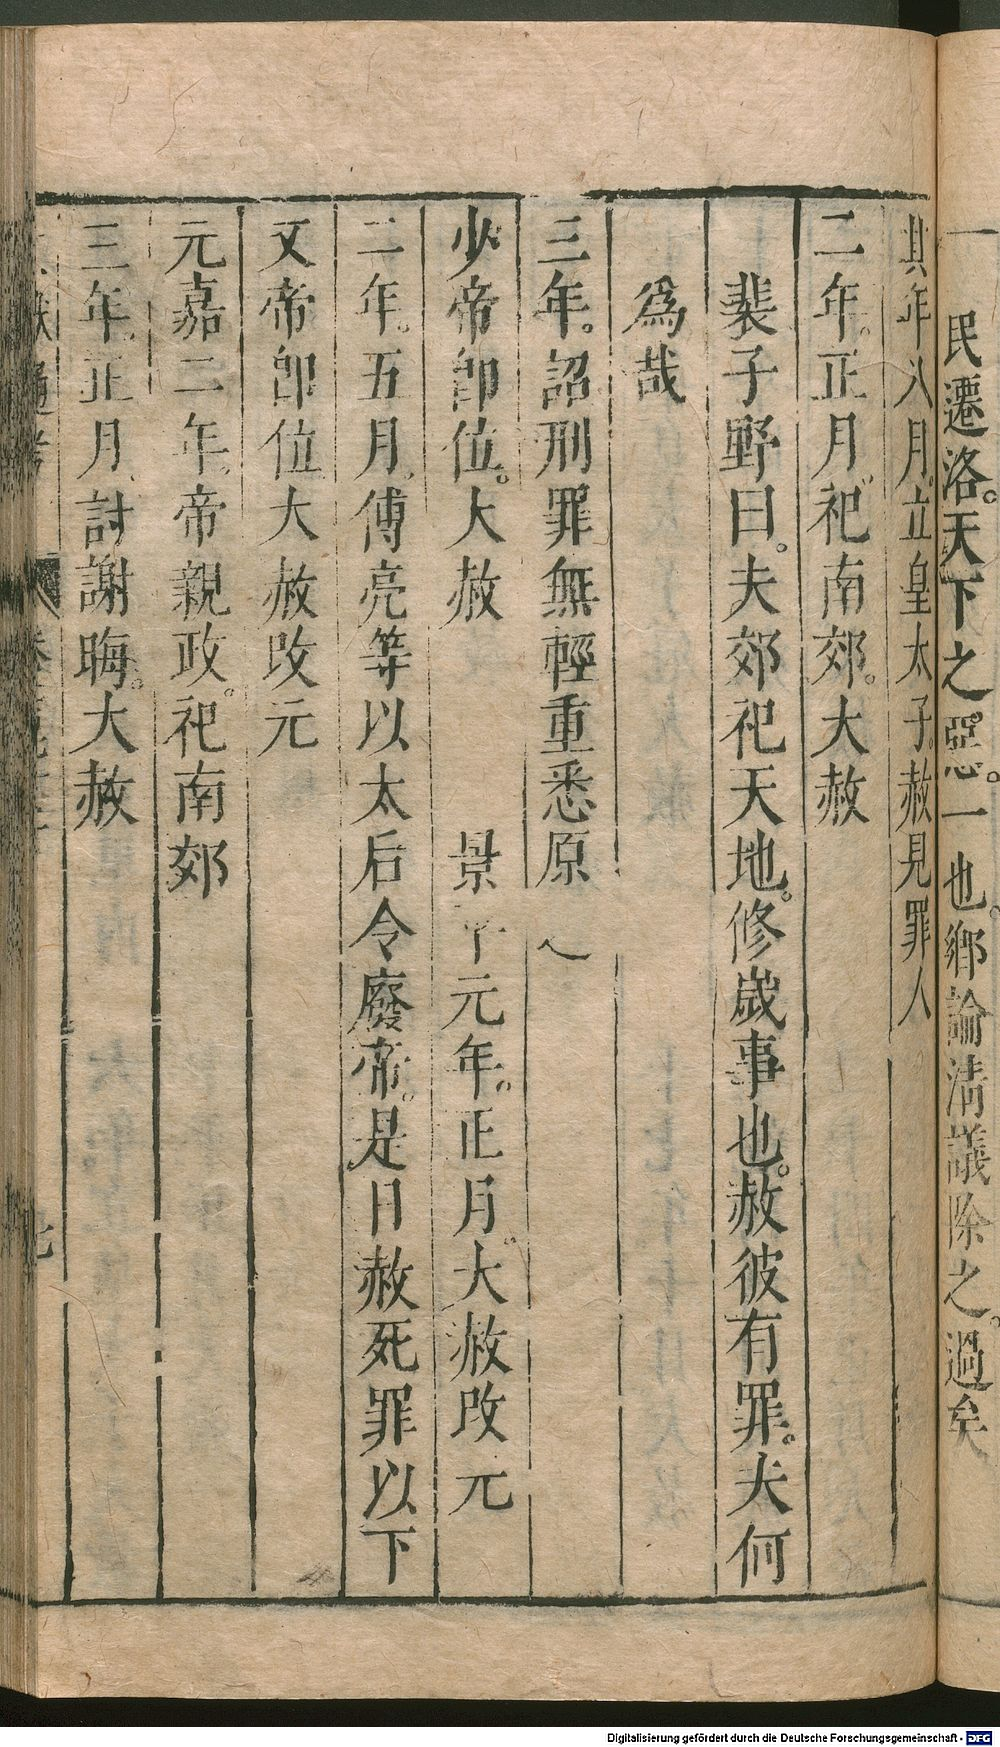 民遷洛。天下之惡。一也。鄉論清議除之。過矣
其年八月。立皇太子。赦見罪人
二年。正月。祀南郊。大赦
裴子野曰。夫郊祀天地。修歲事也。赦彼有罪。夫何
爲哉
三年。詔刑罪無輕重悉原之
少帝卽位。大赦 景平元年。正月。大赦改元
二年。五月。傅亮等以太后令廢帝。是日赦死罪以下
文帝卽位大赦改元
元嘉二年。帝親政。祀南郊
三年。正月。討謝晦。大赦
獻通考
Digitalisierung gefördert durch die Deutsche Forschungsgemeinschaft - DFG